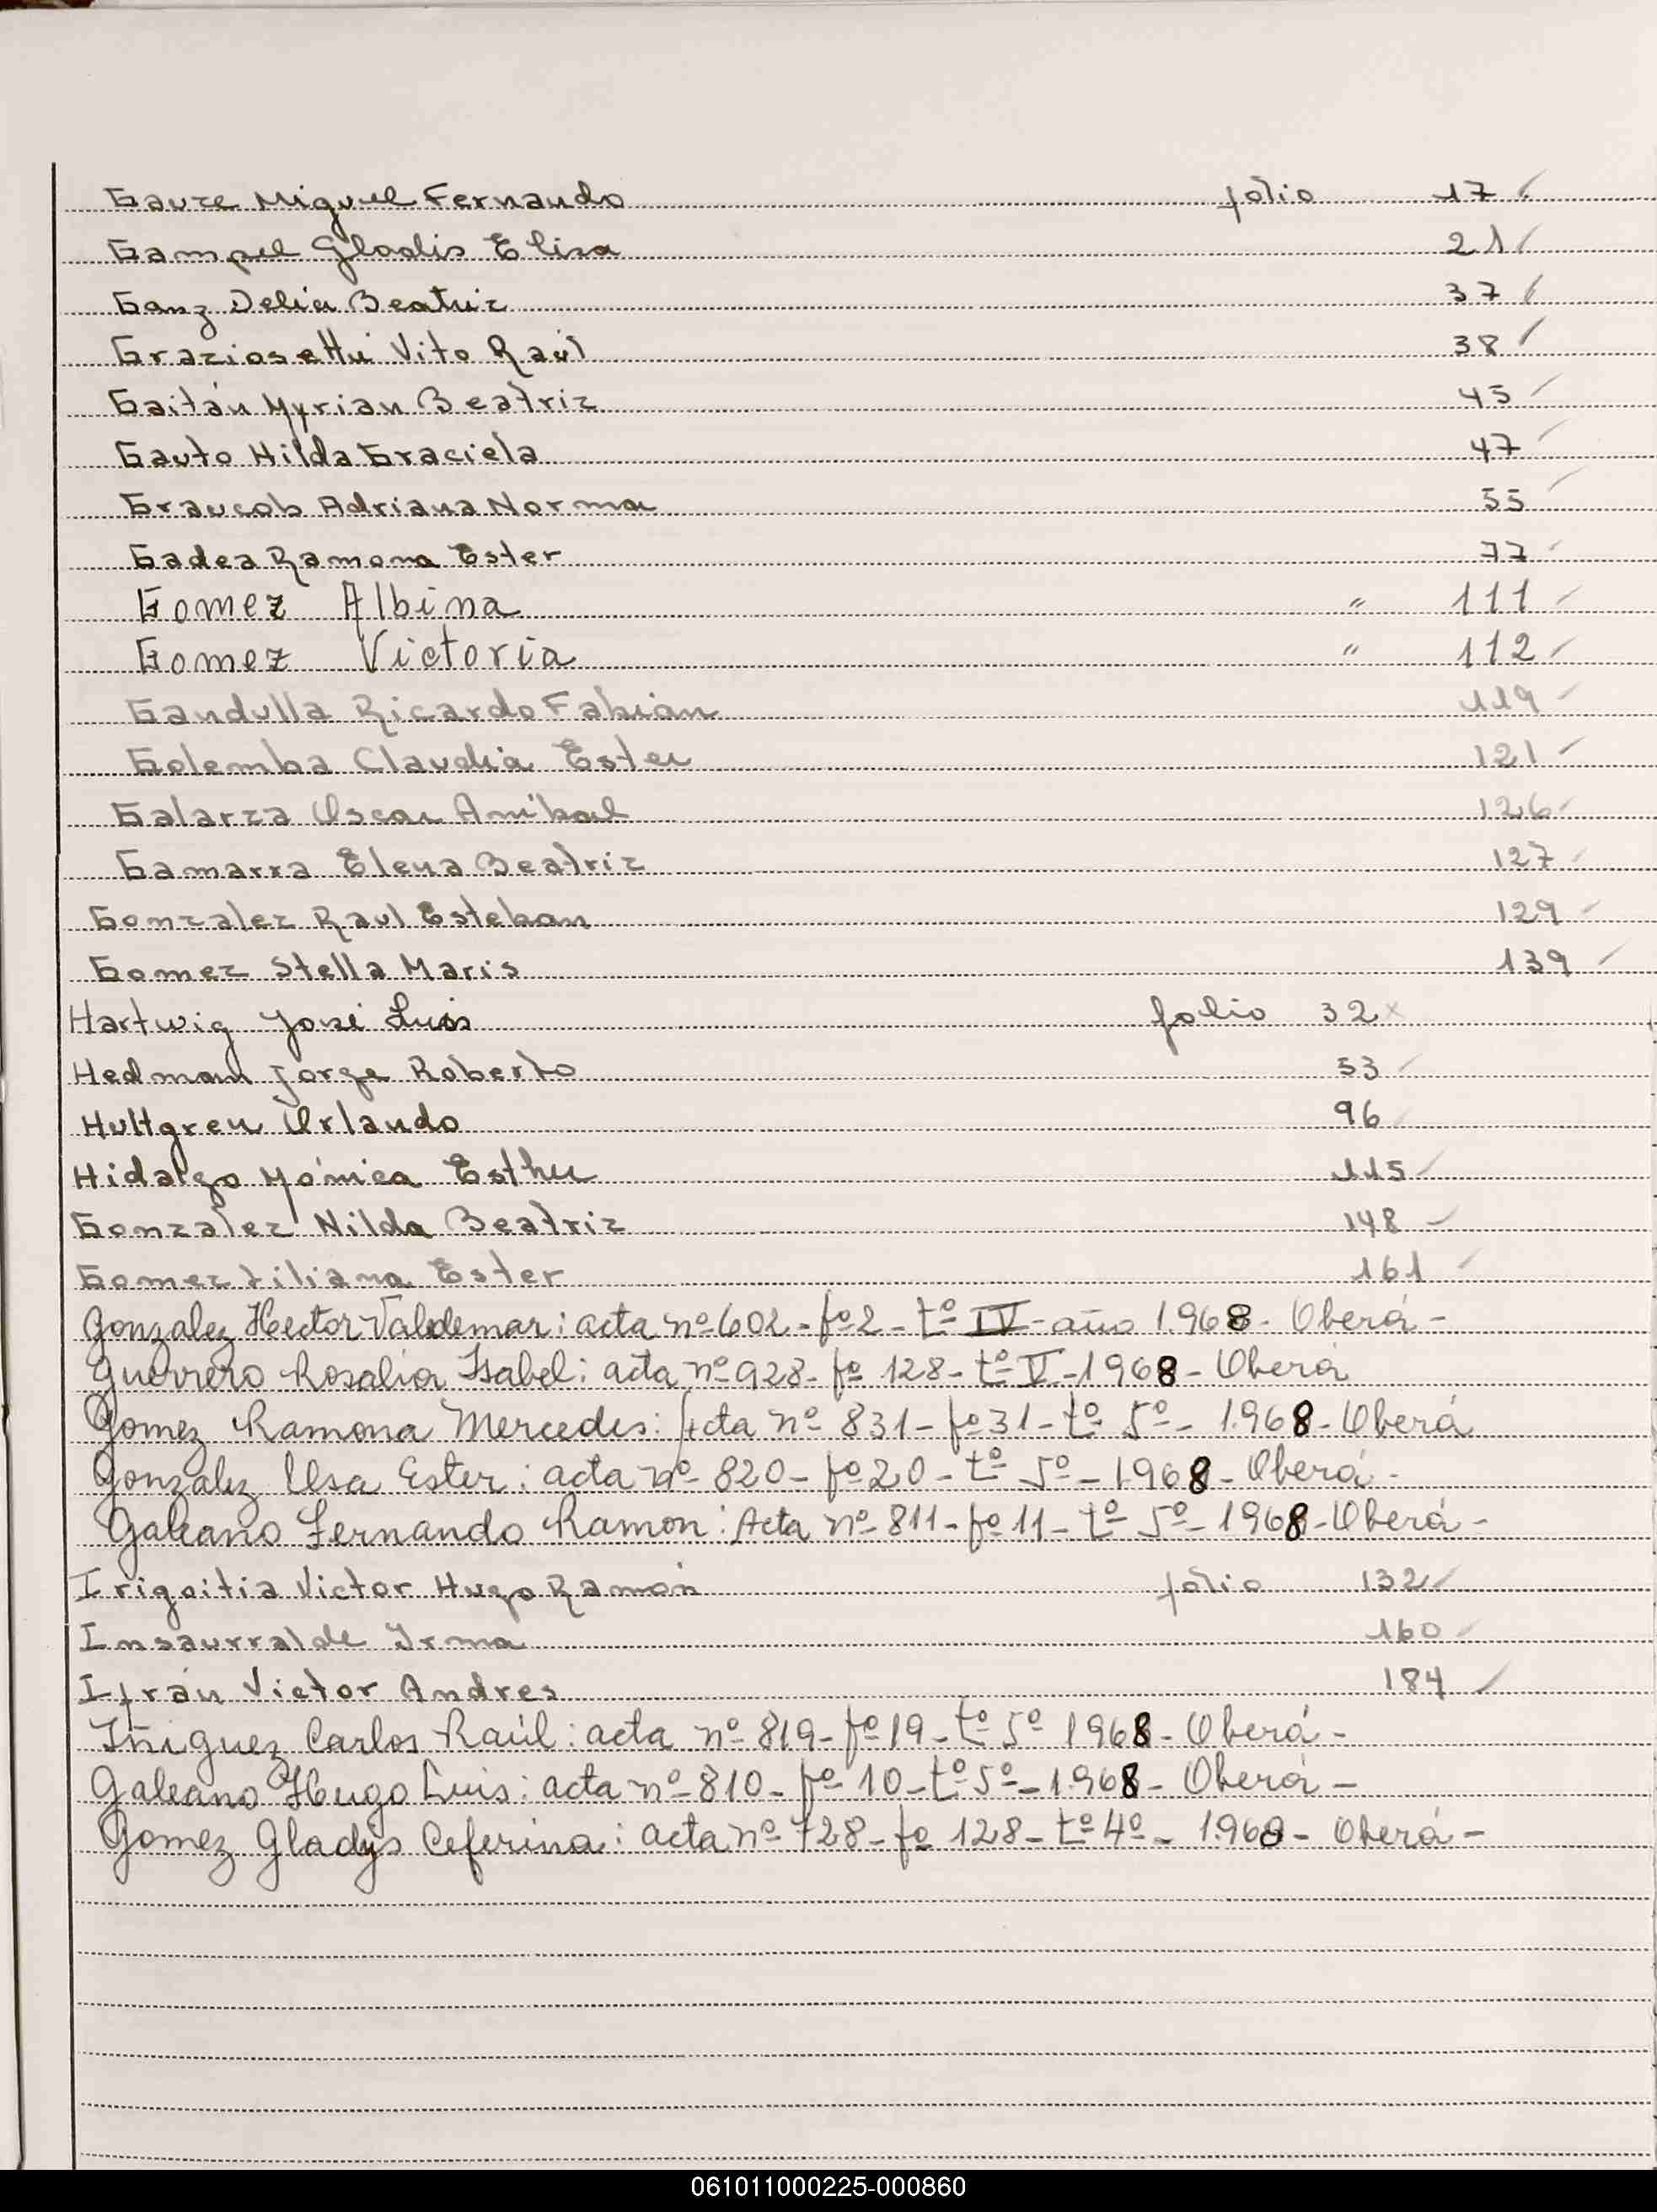 Gauze Miguel Fernando folio 17 ✓
Gampel Gladis Elisa 21 ✓
Ganz Delia Beatriz 37 ✓
Graziosetti Vito Raúl 38 ✓
Gaitán Myrian Beatriz 45 ✓
Gauto Hilda Graciela 47 ✓
Graucob Adriana Norma 55 ✓
Gadea Ramona Ester 77 ✓
Gomez Albina " 111 ✓
Gomez Victoria " 112 ✓
Gandulla Ricardo Fabian 119 ✓
Golemba Claudia Ester 121 ✓
Galarza Oscar Anibal 126 ✓
Gamarra Elena Beatriz 127 ✓
Gonzalez Raul Esteban 129 ✓
Gomez Stella Maris 139 ✓
Hartwig José Luis folio 32 x
Hedman Jorge Roberto 53 ✓
Hultgren Orlando 96 ✓
Hidalgo Mónica Esther 115 ✓
Gonzalez Nilda Beatriz 148 ✓
Gomez Liliana Ester 161 ✓
Gonzalez Hector Valdemar: acta nº 602 - fº 2 - tº IV - año 1.968 - Oberá -
Guerrero Rosalia Isabel: acta nº 928 - fº 128 - tº V - 1968 - Oberá
Gomez Ramona Mercedes: Acta nº 831 - fº 31 - tº 5º - 1.968 - Oberá
Gonzalez Elsa Ester: acta nº 820 - fº 20 - tº 5º - 1968 - Oberá -
Galeano Fernando Ramon: Acta nº 811 - fº 11 - tº 5º - 1968 - Oberá -
Irigoitia Victor Hugo Ramón folio 132 ✓
Insaurralde Irma 160 ✓
Ifrán Victor Andres 184 ✓
Iñiguez Carlos Raúl: acta nº 819 - fº 19 - tº 5º 1968 - Oberá -
Galeano Hugo Luis: acta nº 810 - fº 10 - tº 5º - 1968 - Oberá -
Gomez Gladys Ceferina: acta nº 728 - fº 128 - tº 4º - 1.968 - Oberá -
061011000225-000860